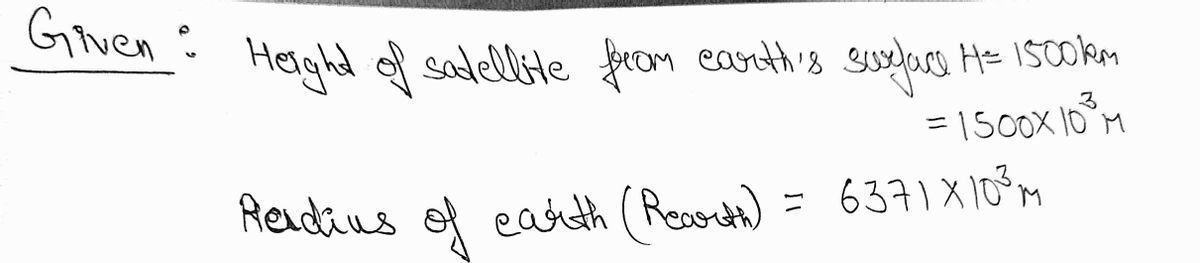 Given : Height of satellite from earth's surface H = 1500km
= 1500X10³ M
Radius of earth (Rearth) = 6371X10³ m